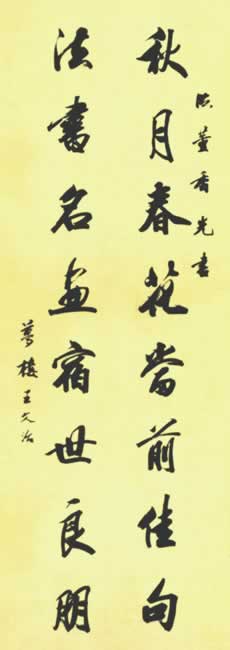 董香光書
秋月春花當前佳句
法書名畫宿世良朋
夢樓王文治